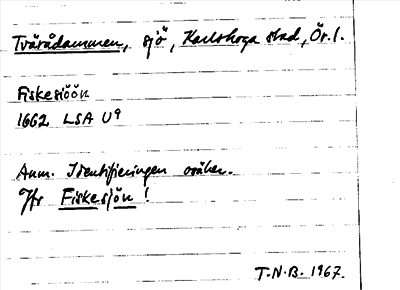 Tvärådammen, sjö, Karlskoga stad, Ör. l.
Fiskesiöön
1662 LSA U9
Anm. Identifieringen osäker.
Jfr Fiskesjön!
T.N.B. 1967.